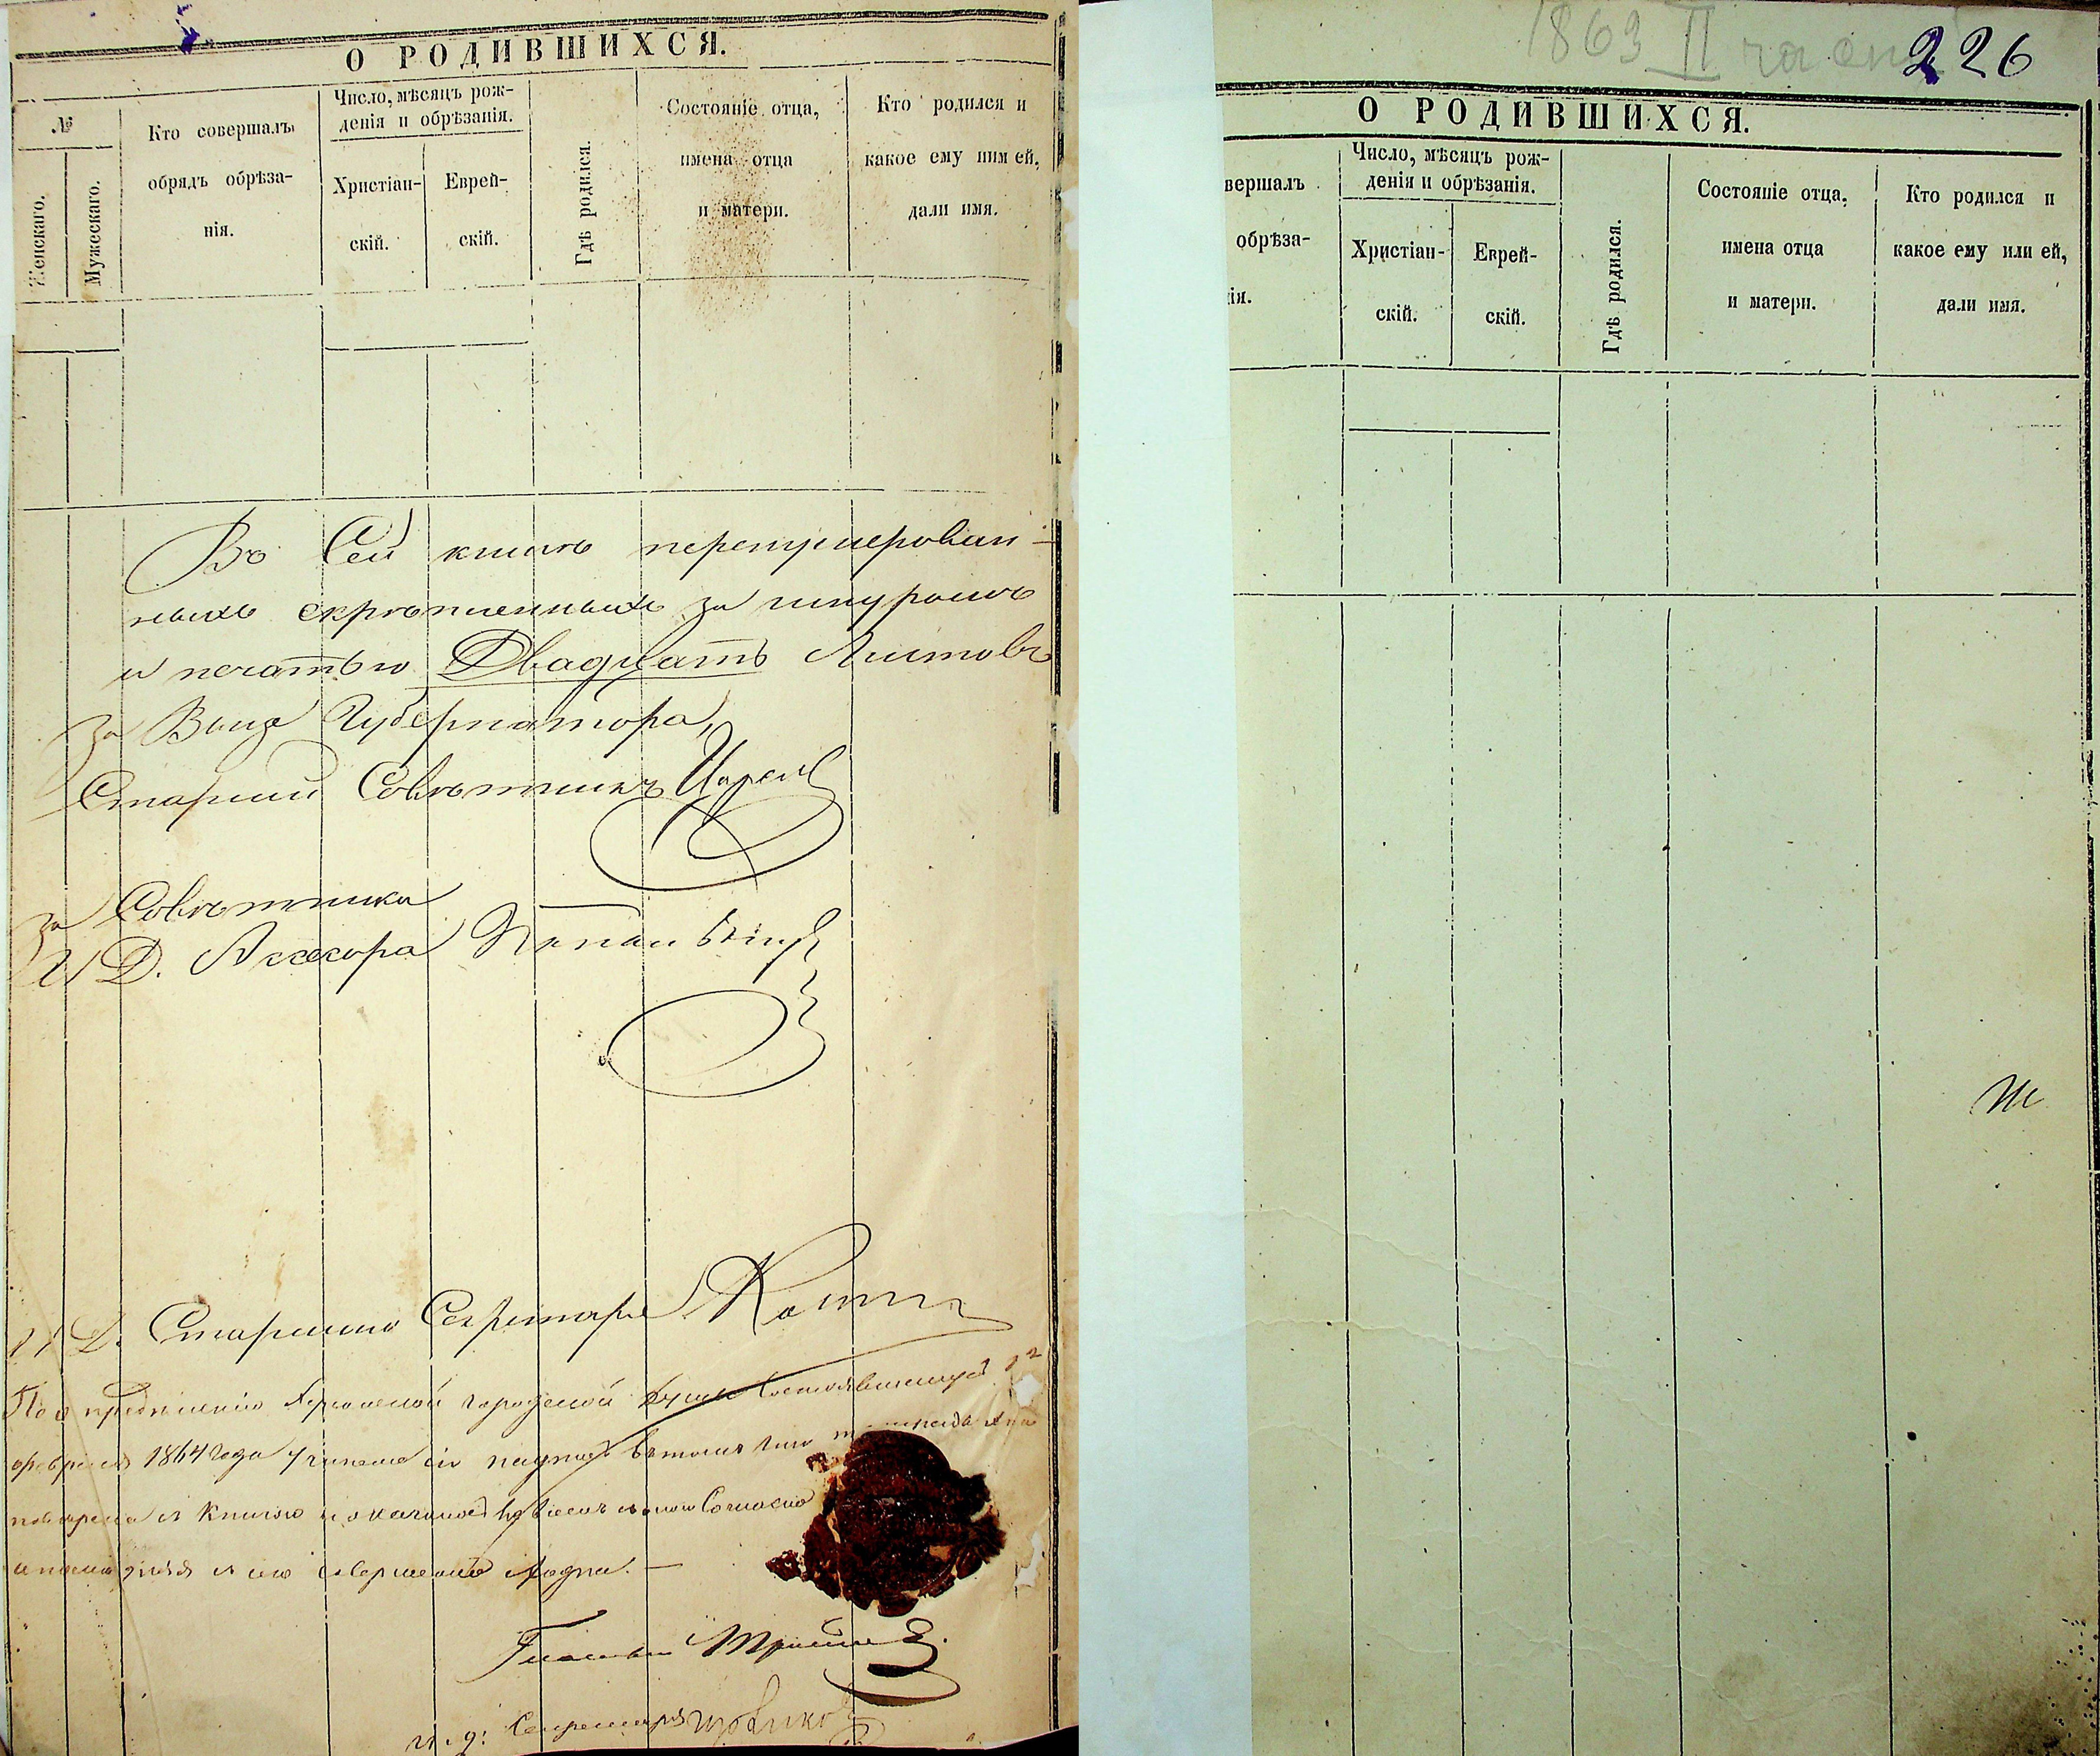 О РОДИВШИХСЯ.
№
Женскаго.
Мужескаго.
Кто совершалъ
обрядъ обрѣза-
нія.
Число, мѣсяцъ рож-
денія и обрѣзанія.
Христіан-
скій.
Еврей-
скій.
Гдѣ родился.
Состояніе отца,
имена отца
и матери.
Кто родился и
какое ему или ей,
дали имя.
Въ Сей книгѣ перенумерован-
ныхъ скрѣпленныхъ за шнуромъ
и печатью Двадцать Листовъ
За Вице Губернатора,
Старший Совѣтникъ
за Совѣтника
И Д. Ассесора
И Д. Старшаго Секретаря
По опредѣленію городской Думы состоявшемуся
февраля 1864 года учинена сія въ томъ что
книгою согласно
Гласный
и. д: Секретаря
1863 II части
226
О РОДИВШИХСЯ.
вершалъ
обрѣза-
ія.
Число, мѣсяцъ рож-
денія и обрѣзанія.
Христіан-
скій.
Еврей-
скій.
Гдѣ родился.
Состояніе отца,
имена отца
и матери.
Кто родился и
какое ему или ей,
дали имя.